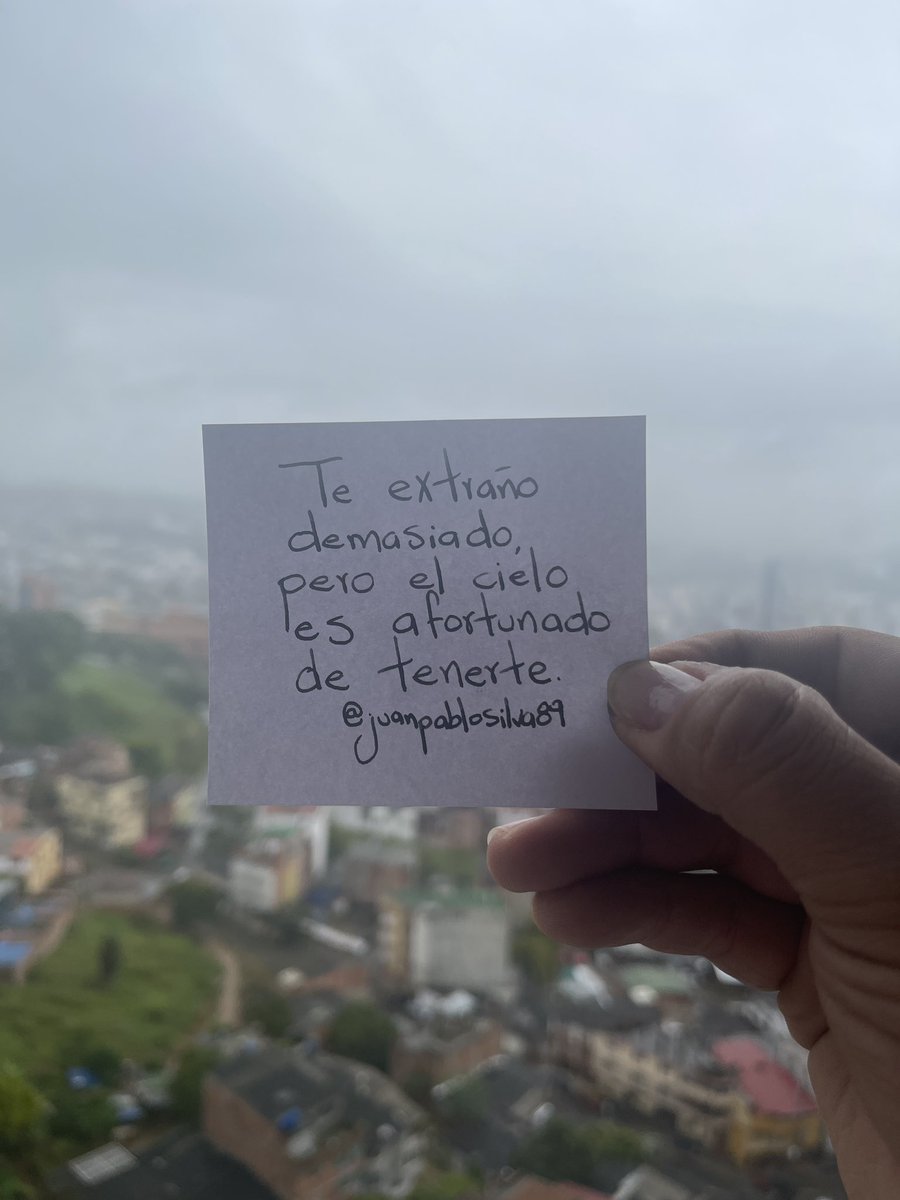 Te extraño
demasiado,
pero el cielo
es afortunado
de tenerte.
@juanpablosilva89